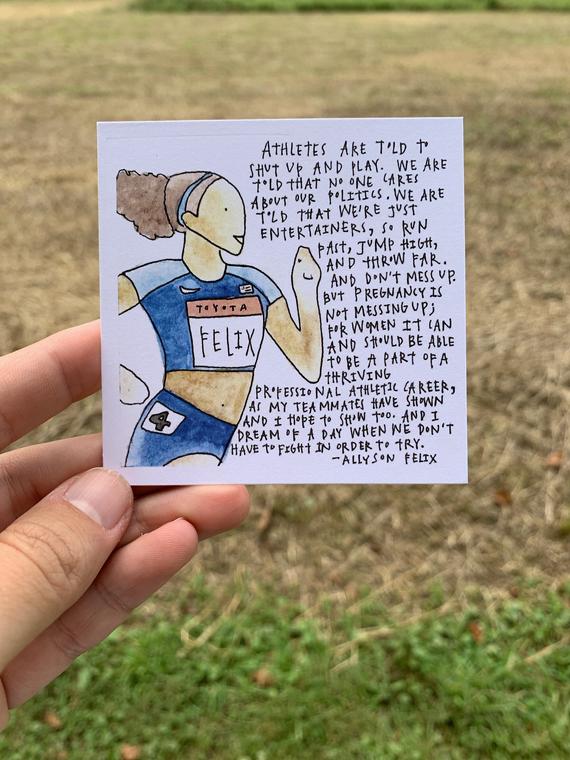 ATHLETES ARE TOLD TO
SHUT UP AND PLAY. WE ARE
TOLD THAT NO ONE CARES
ABOUT OUR POLITICS. WE ARE
TOLD THAT WE'RE JUST
ENTERTAINERS, SO RUN
FAST, JUMP HIGH,
AND THROW FAR.
AND DON'T MESS UP.
BUT PREGNANCY IS
NOT MESSING UP;
FOR WOMEN IT CAN
AND SHOULD BE ABLE
TO BE A PART OF A
THRIVING
PROFESSIONAL ATHLETIC CAREER,
AS MY TEAMMATES HAVE SHOWN
AND I HOPE TO SHOW TOO. AND I
DREAM OF A DAY WHEN WE DON'T
HAVE TO FIGHT IN ORDER TO TRY.
-ALLYSON FELIX
TOYOTA
FELIX
4